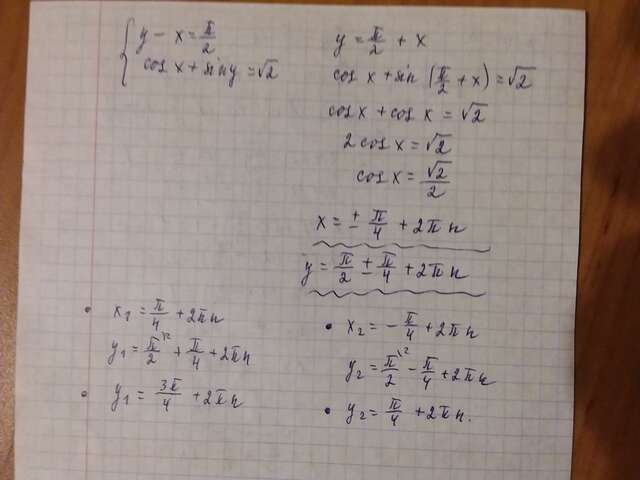 y - x = π/2
cos x + sin y = √2
y = π/2 + x
cos x + sin (π/2 + x) = √2
cos x + cos x = √2
2 cos x = √2
cos x = √2/2
x = ± π/4 + 2πn
y = π/2 ± π/4 + 2πn
• x₁ = π/4 + 2πn
y₁ = π/2 \² + π/4 + 2πn
• y₁ = 3π/4 + 2πn
• x₂ = - π/4 + 2πn
y₂ = π/2 \² - π/4 + 2πn
• y₂ = π/4 + 2πn.